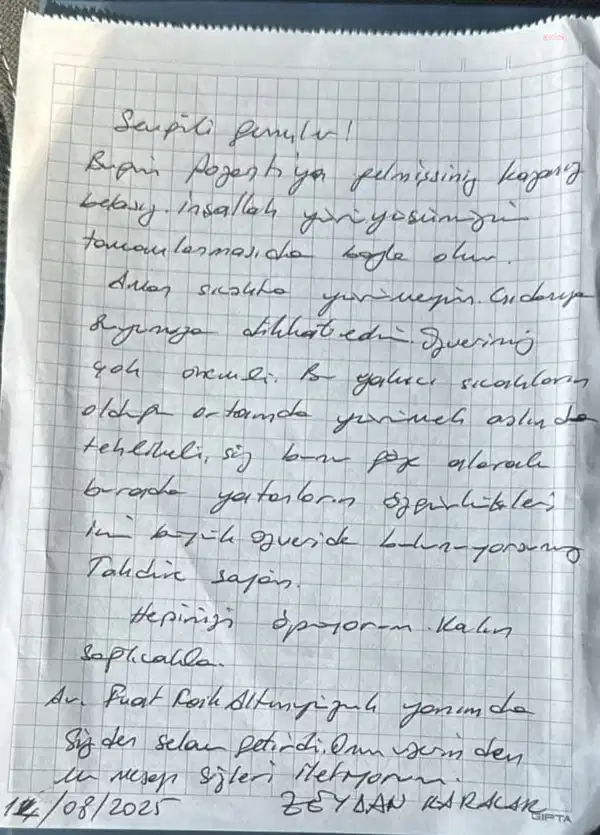 Sevgili gençler!
Bugün Pozantı'ya gelmişsiniz kazasız
belasız. İnşallah yürüyüşünüzün
tamamlanması da böyle olur.
Aman sıcakta yürümeyin. Gıdanıza
suyunuza dikkat edin. Özveriniz
çok önemli. Bu yakıcı sıcakların
olduğu ortamda yürümek aslında
tehlikeli, siz bunu göze alarak
burada yatanların özgürlükleri
için büyük özveride bulunuyorsunuz
Takdire şayan.
Hepinizi öpüyorum. Kalın
sağlıcakla.
Av. Fuat Razi Altunyüzük yanımda
Sizden selam getirdi. Onun üzerinden
bu mesajı sizlere iletiyorum.
14/08/2025 ZEYDAN KARALAR
GIPTA